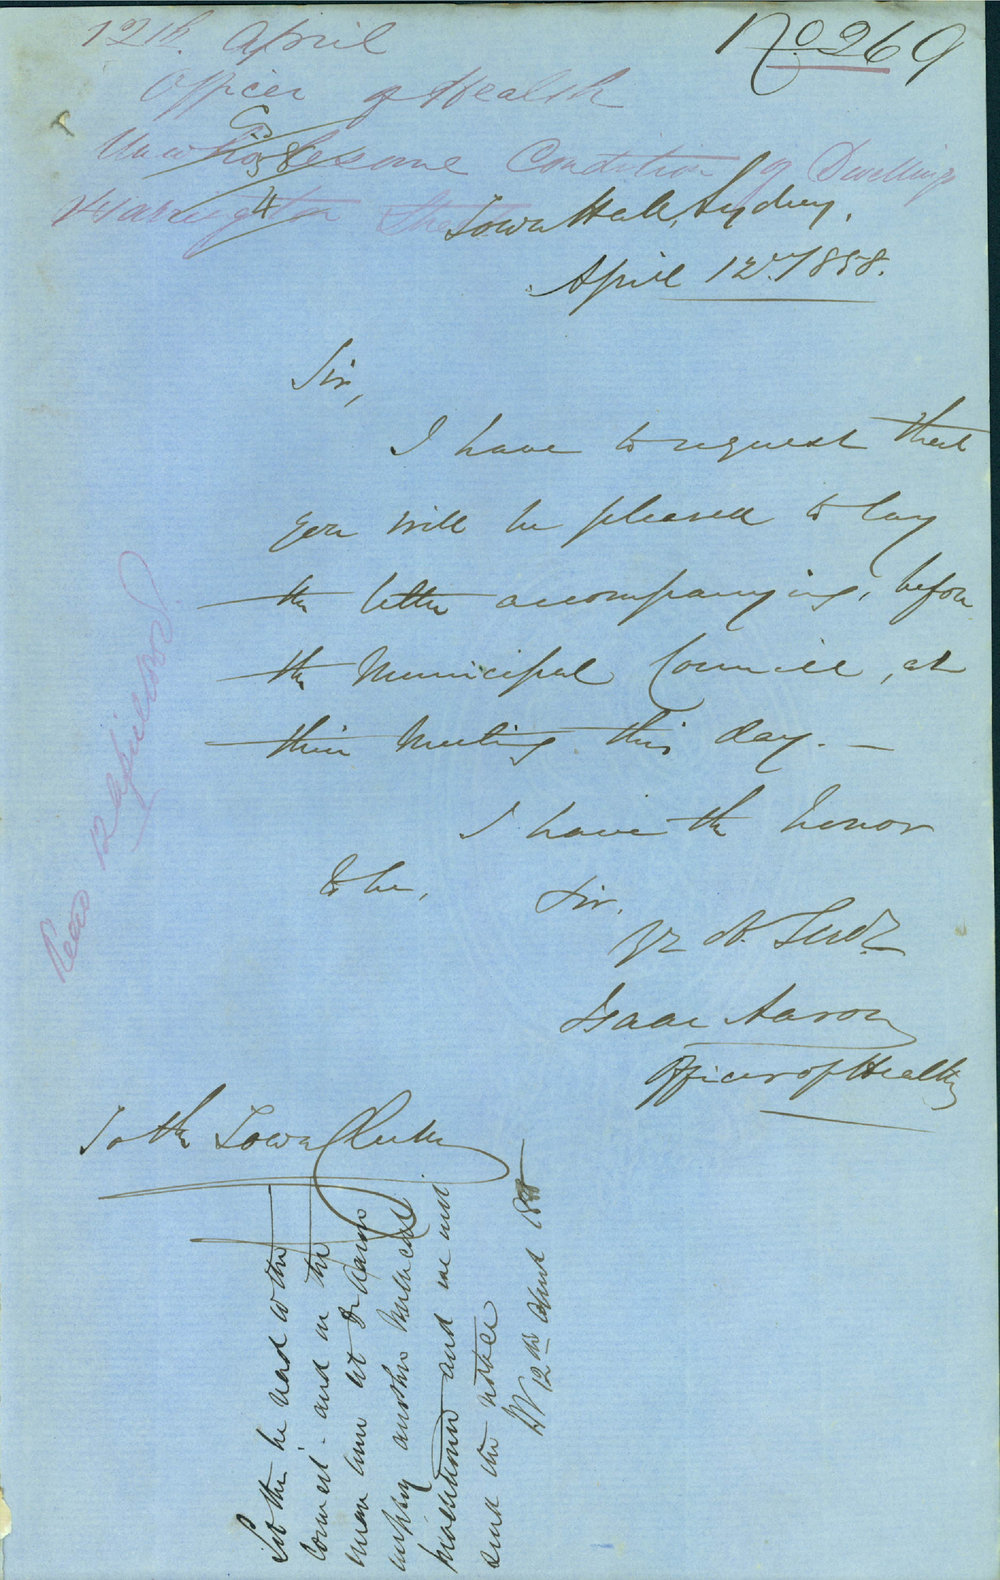 12th. April
No 269
Officer of Health
Unwholesome Condition of Dwellings
Warrington Street
58
4
Town Hall, Sydney,
April 12th/1858.
Sir,
I have to request that
you will be pleased to lay
the letter accompanying, before
the Municipal Council, at
their Meeting this day. —
I have the honor
to be,
Sir,
Yr Ob. Servt
Isaac Aaron
Officer of Health
To the Town Clerk
Read 12 April
Let this be read to the
Council - and in the
mean time let Dr Aaron
employ another Medical
and we will
send the notice
12th April 1858